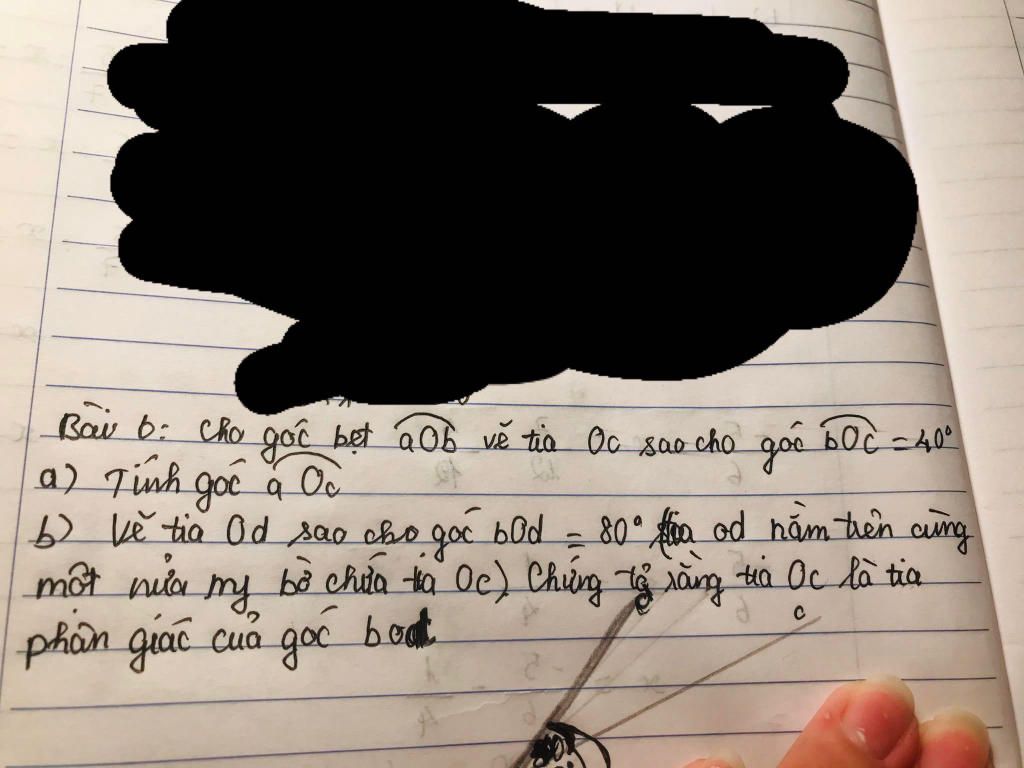 Bài 6: Cho góc bẹt aOb vẽ tia Oc sao cho góc bOc = 40°
a) Tính góc aOc
b) Vẽ tia Od sao cho góc bOd = 80° (tia od nằm trên cùng
một nửa mp bờ chứa tia Oc). Chứng tỏ rằng tia Oc là tia
phân giác của góc bod
c